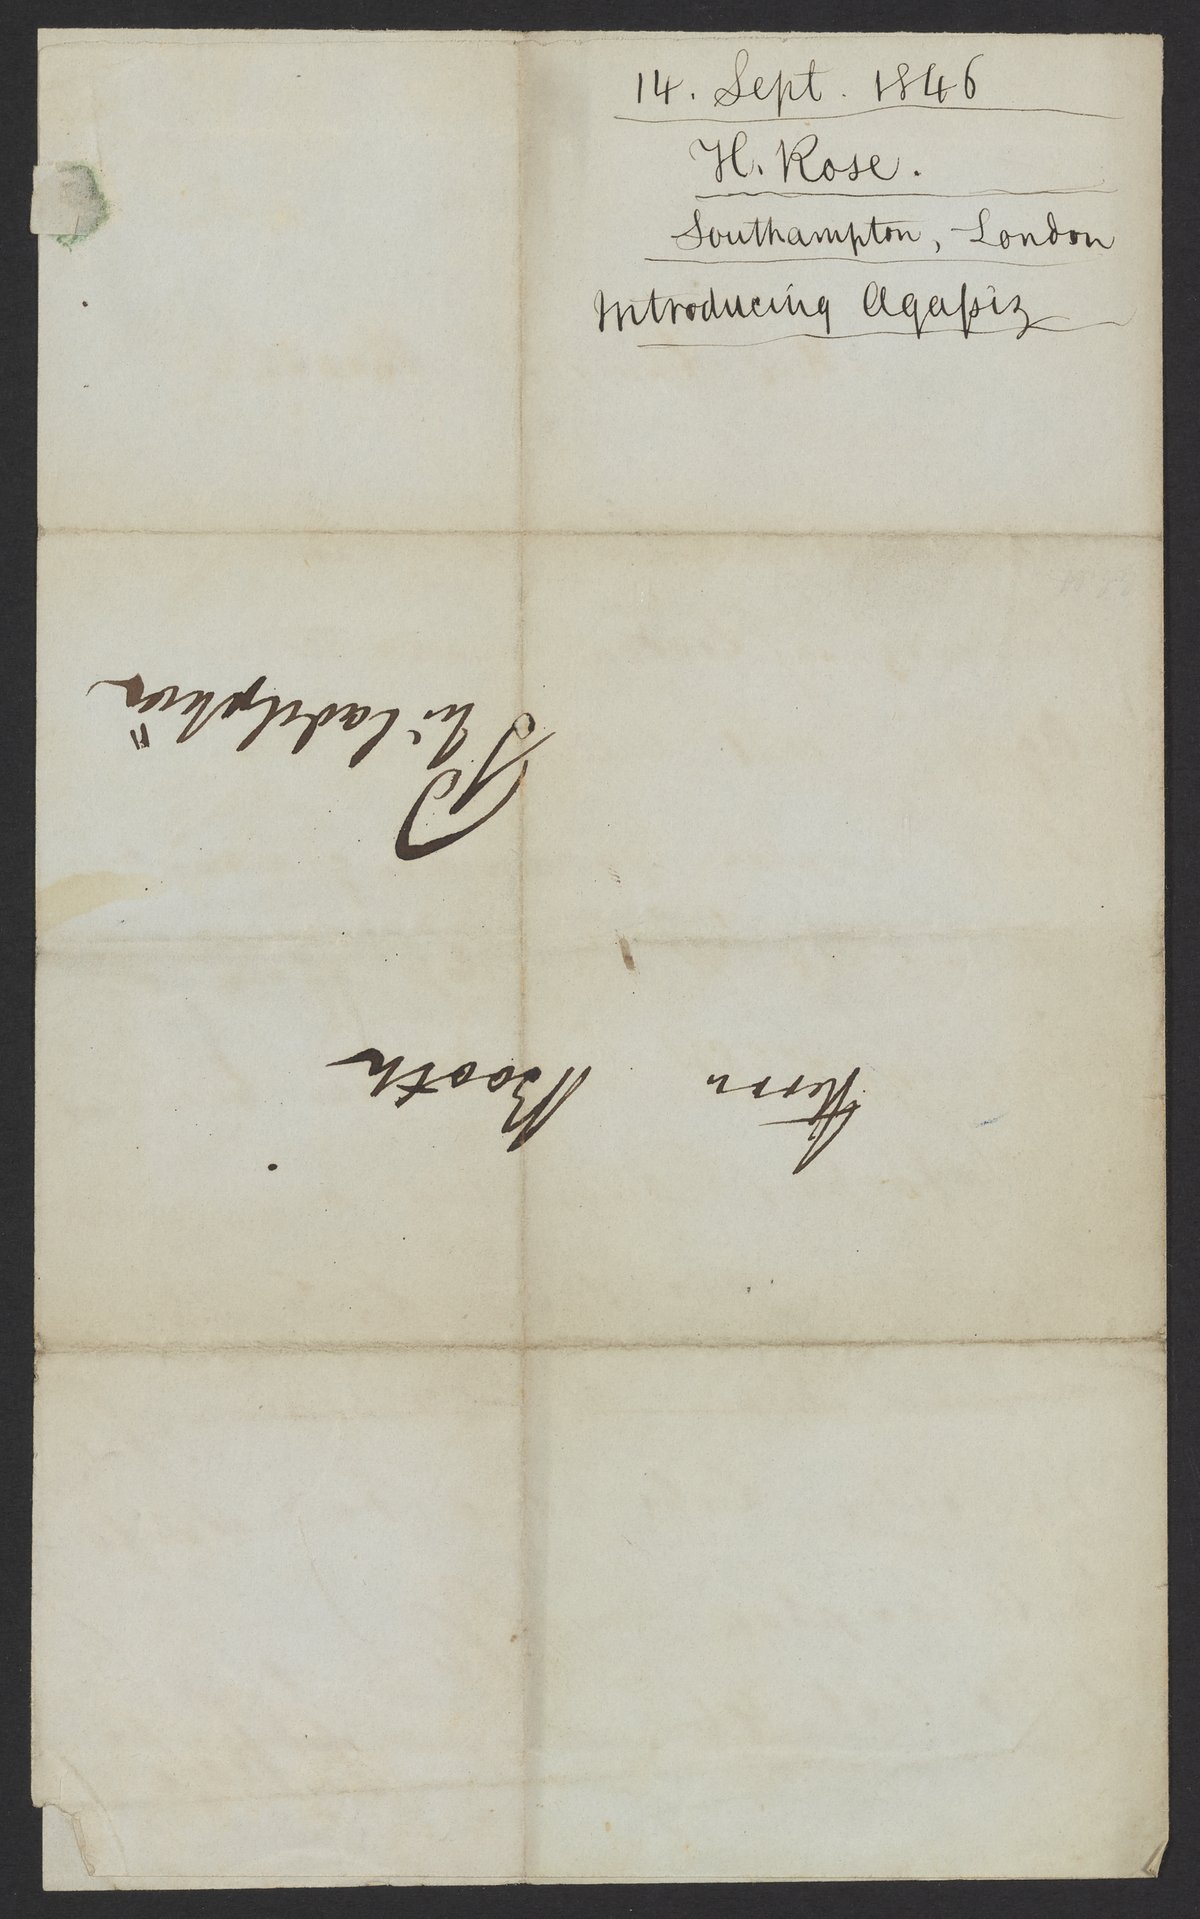 14. Sept. 1846
H. Rose.
Southampton, London
Introducing Agaſsiz
Herrn Booth
Philadelphia